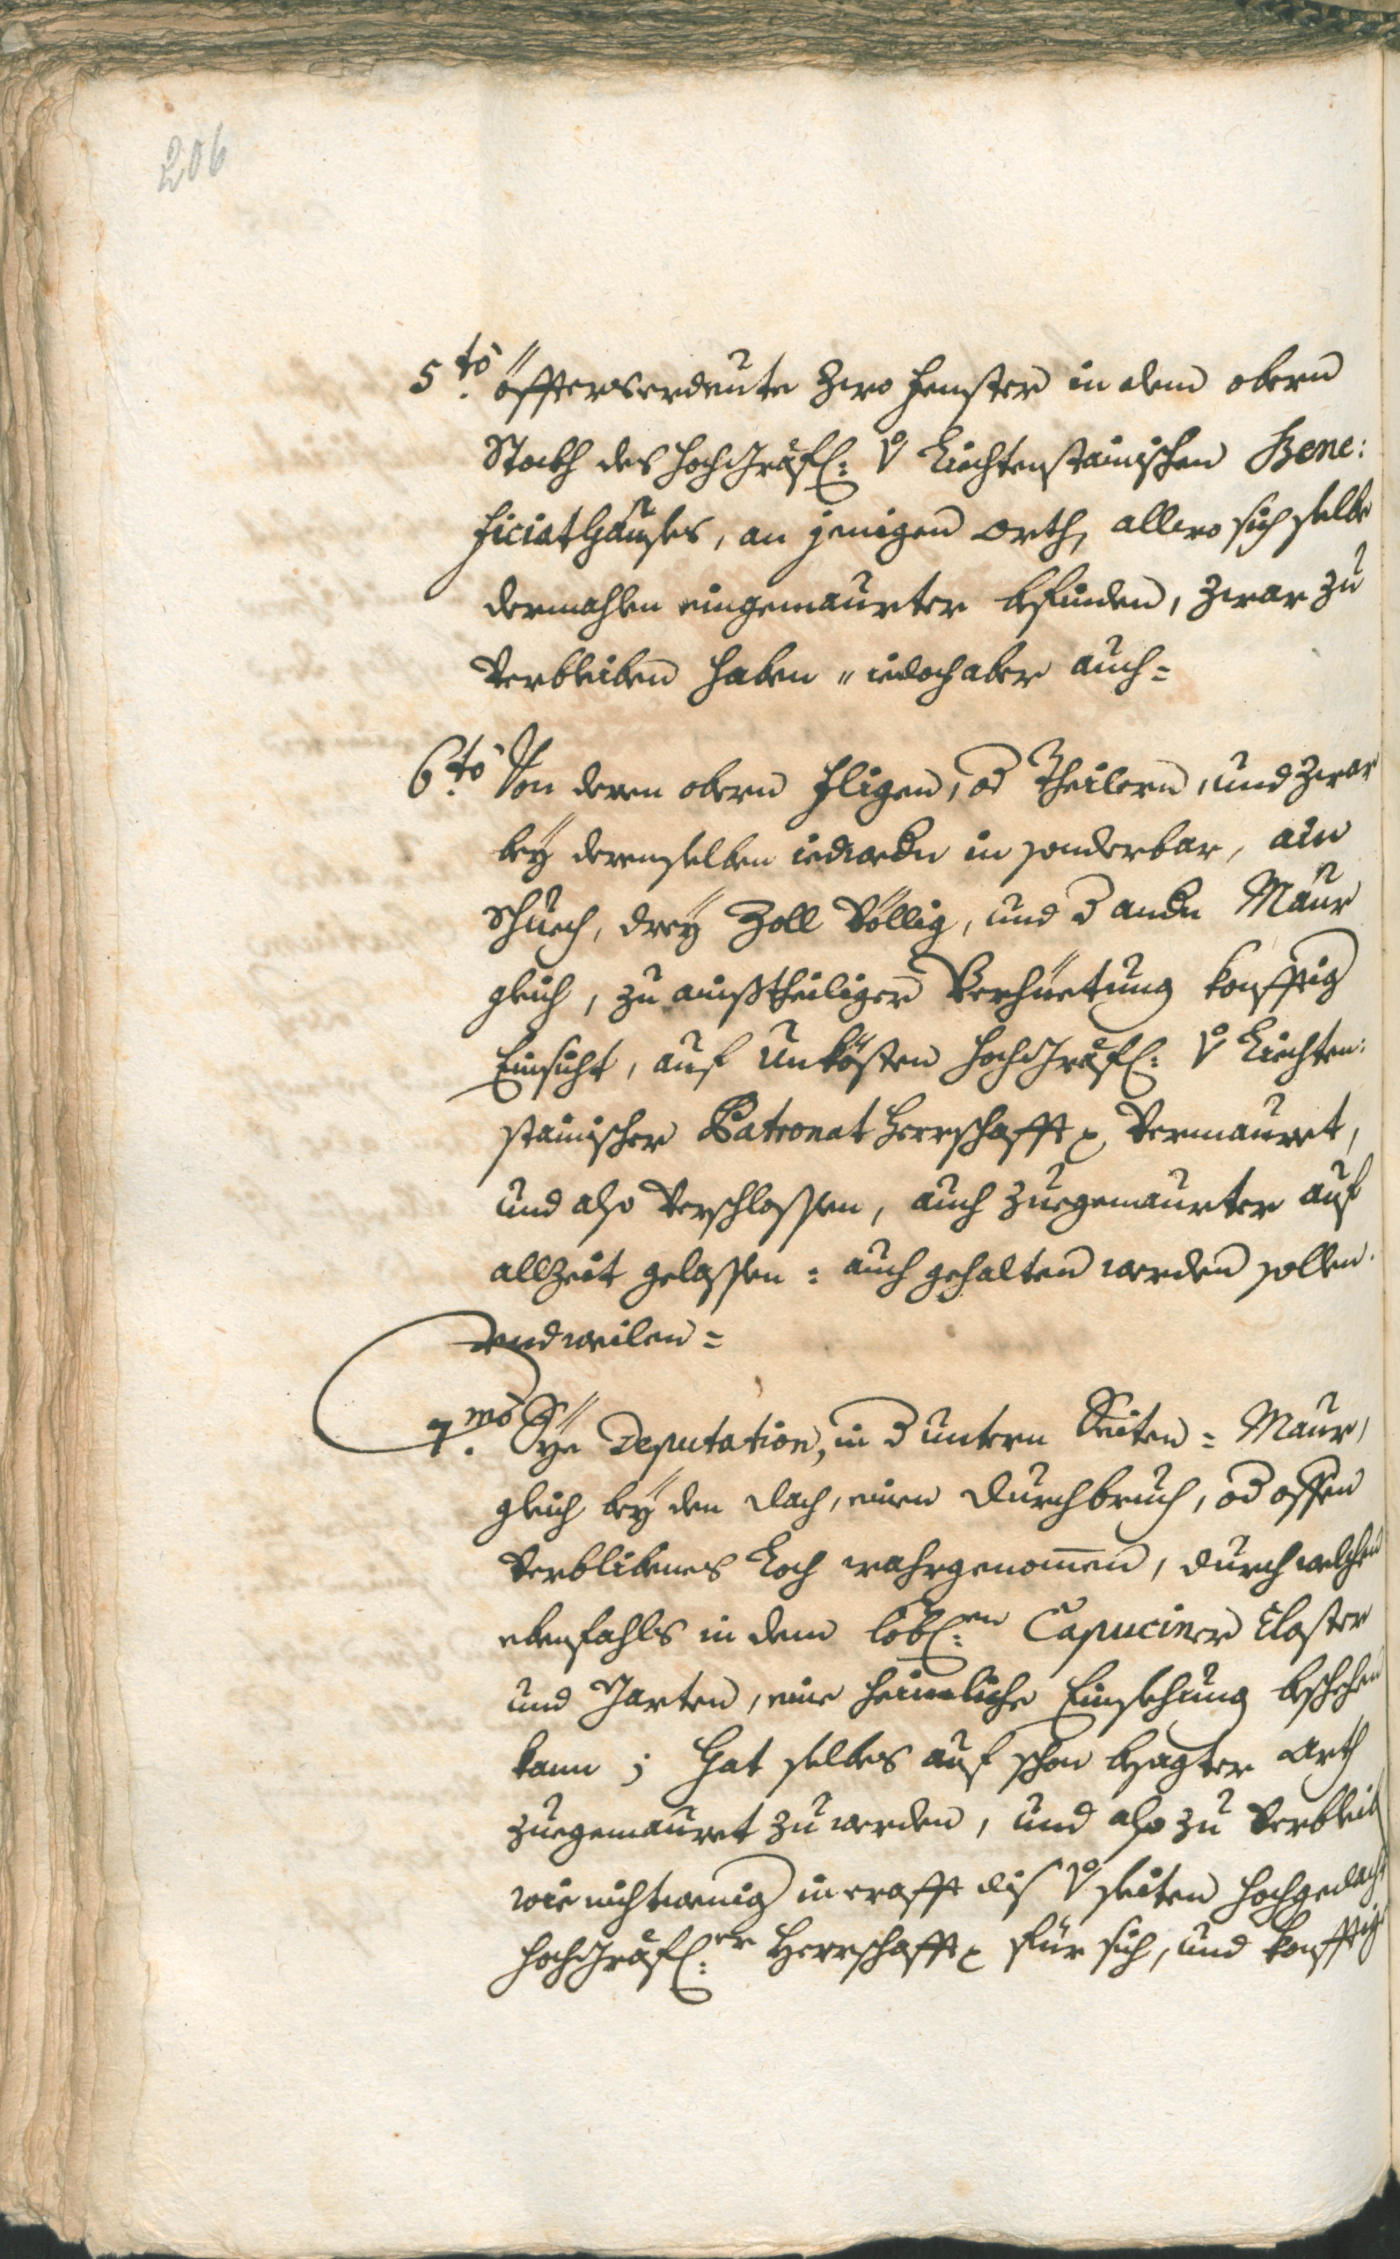 206
5.to öffterserdeute zwo Fenster in dem obern
Stockh des HochGräfl: v Liechtenstainischen Bene:
ficiathauses, an jenigen orth, allwo sich selbe
dermahlen eingemaurter befinden, zwar zu
Verbleiben haben „ iedoch aber auch =
6.to Von deren obern Fligen, od Theilern, und zwar
bey derenselben iedwedn in sonderbar, ain
Schuech, drey Zoll Völlig, und d andn Maur
gleich, zu Verhüettung konfftig
Einsicht, auf Unkösten HochGräfl: v Liechten:
stainischer Patronat Herrschafft Vermauret,
und also Verschlossen, auch zuegemaurter auf
allzeit gelassen = auch gehalten werden sollen.
undweilen =
7.mo Sye Deputation, in d untern Seiten = Maur,
gleich bey den Dach, einen Durchbruch, od offen
Verblibenes Loch wahrgenommen, durch welches
ebenfahls in dem löbl:en Capuciner Closter
und Garten, eine heimliche Einsehung beschehen
kann; Hat selbes auf schon besagter Arth
zuegemauret zu werden, und also zu Verbleib
wie nichtwenig in crafft dis v seiten Hochgedacht
HochGräfl:er Herrschafft für sich, und konfftig